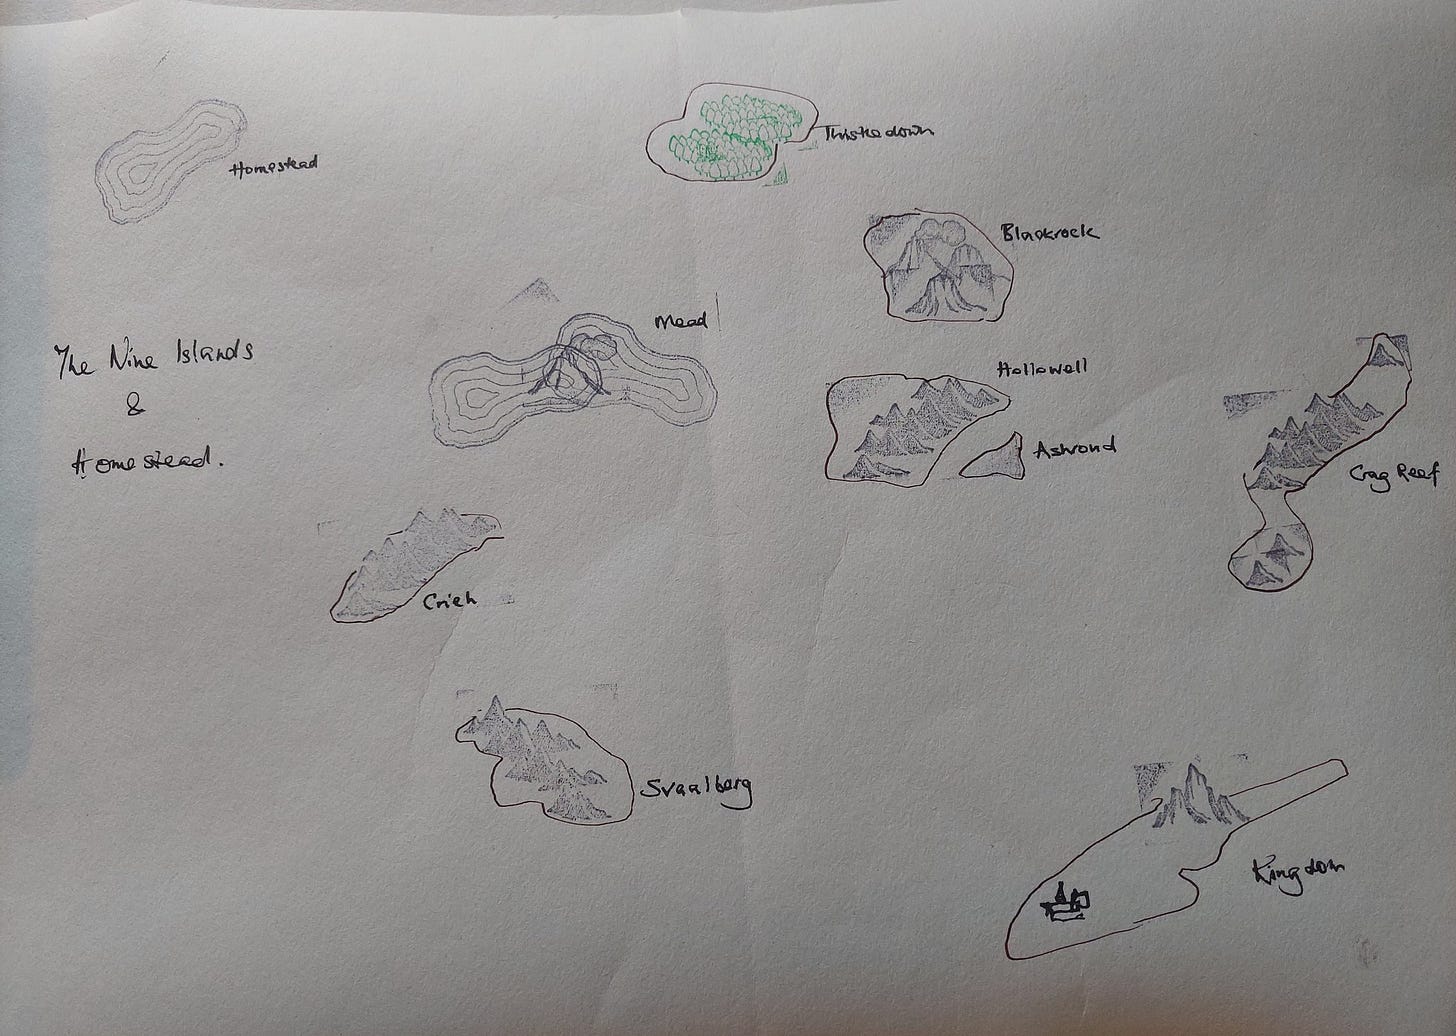 Homestead
Thistledown
Blackrock
Mead
The Nine Islands
&
Homestead.
Hollowell
Ashrond
Crag Reef
Crieh
Svaalberg
Kingdom